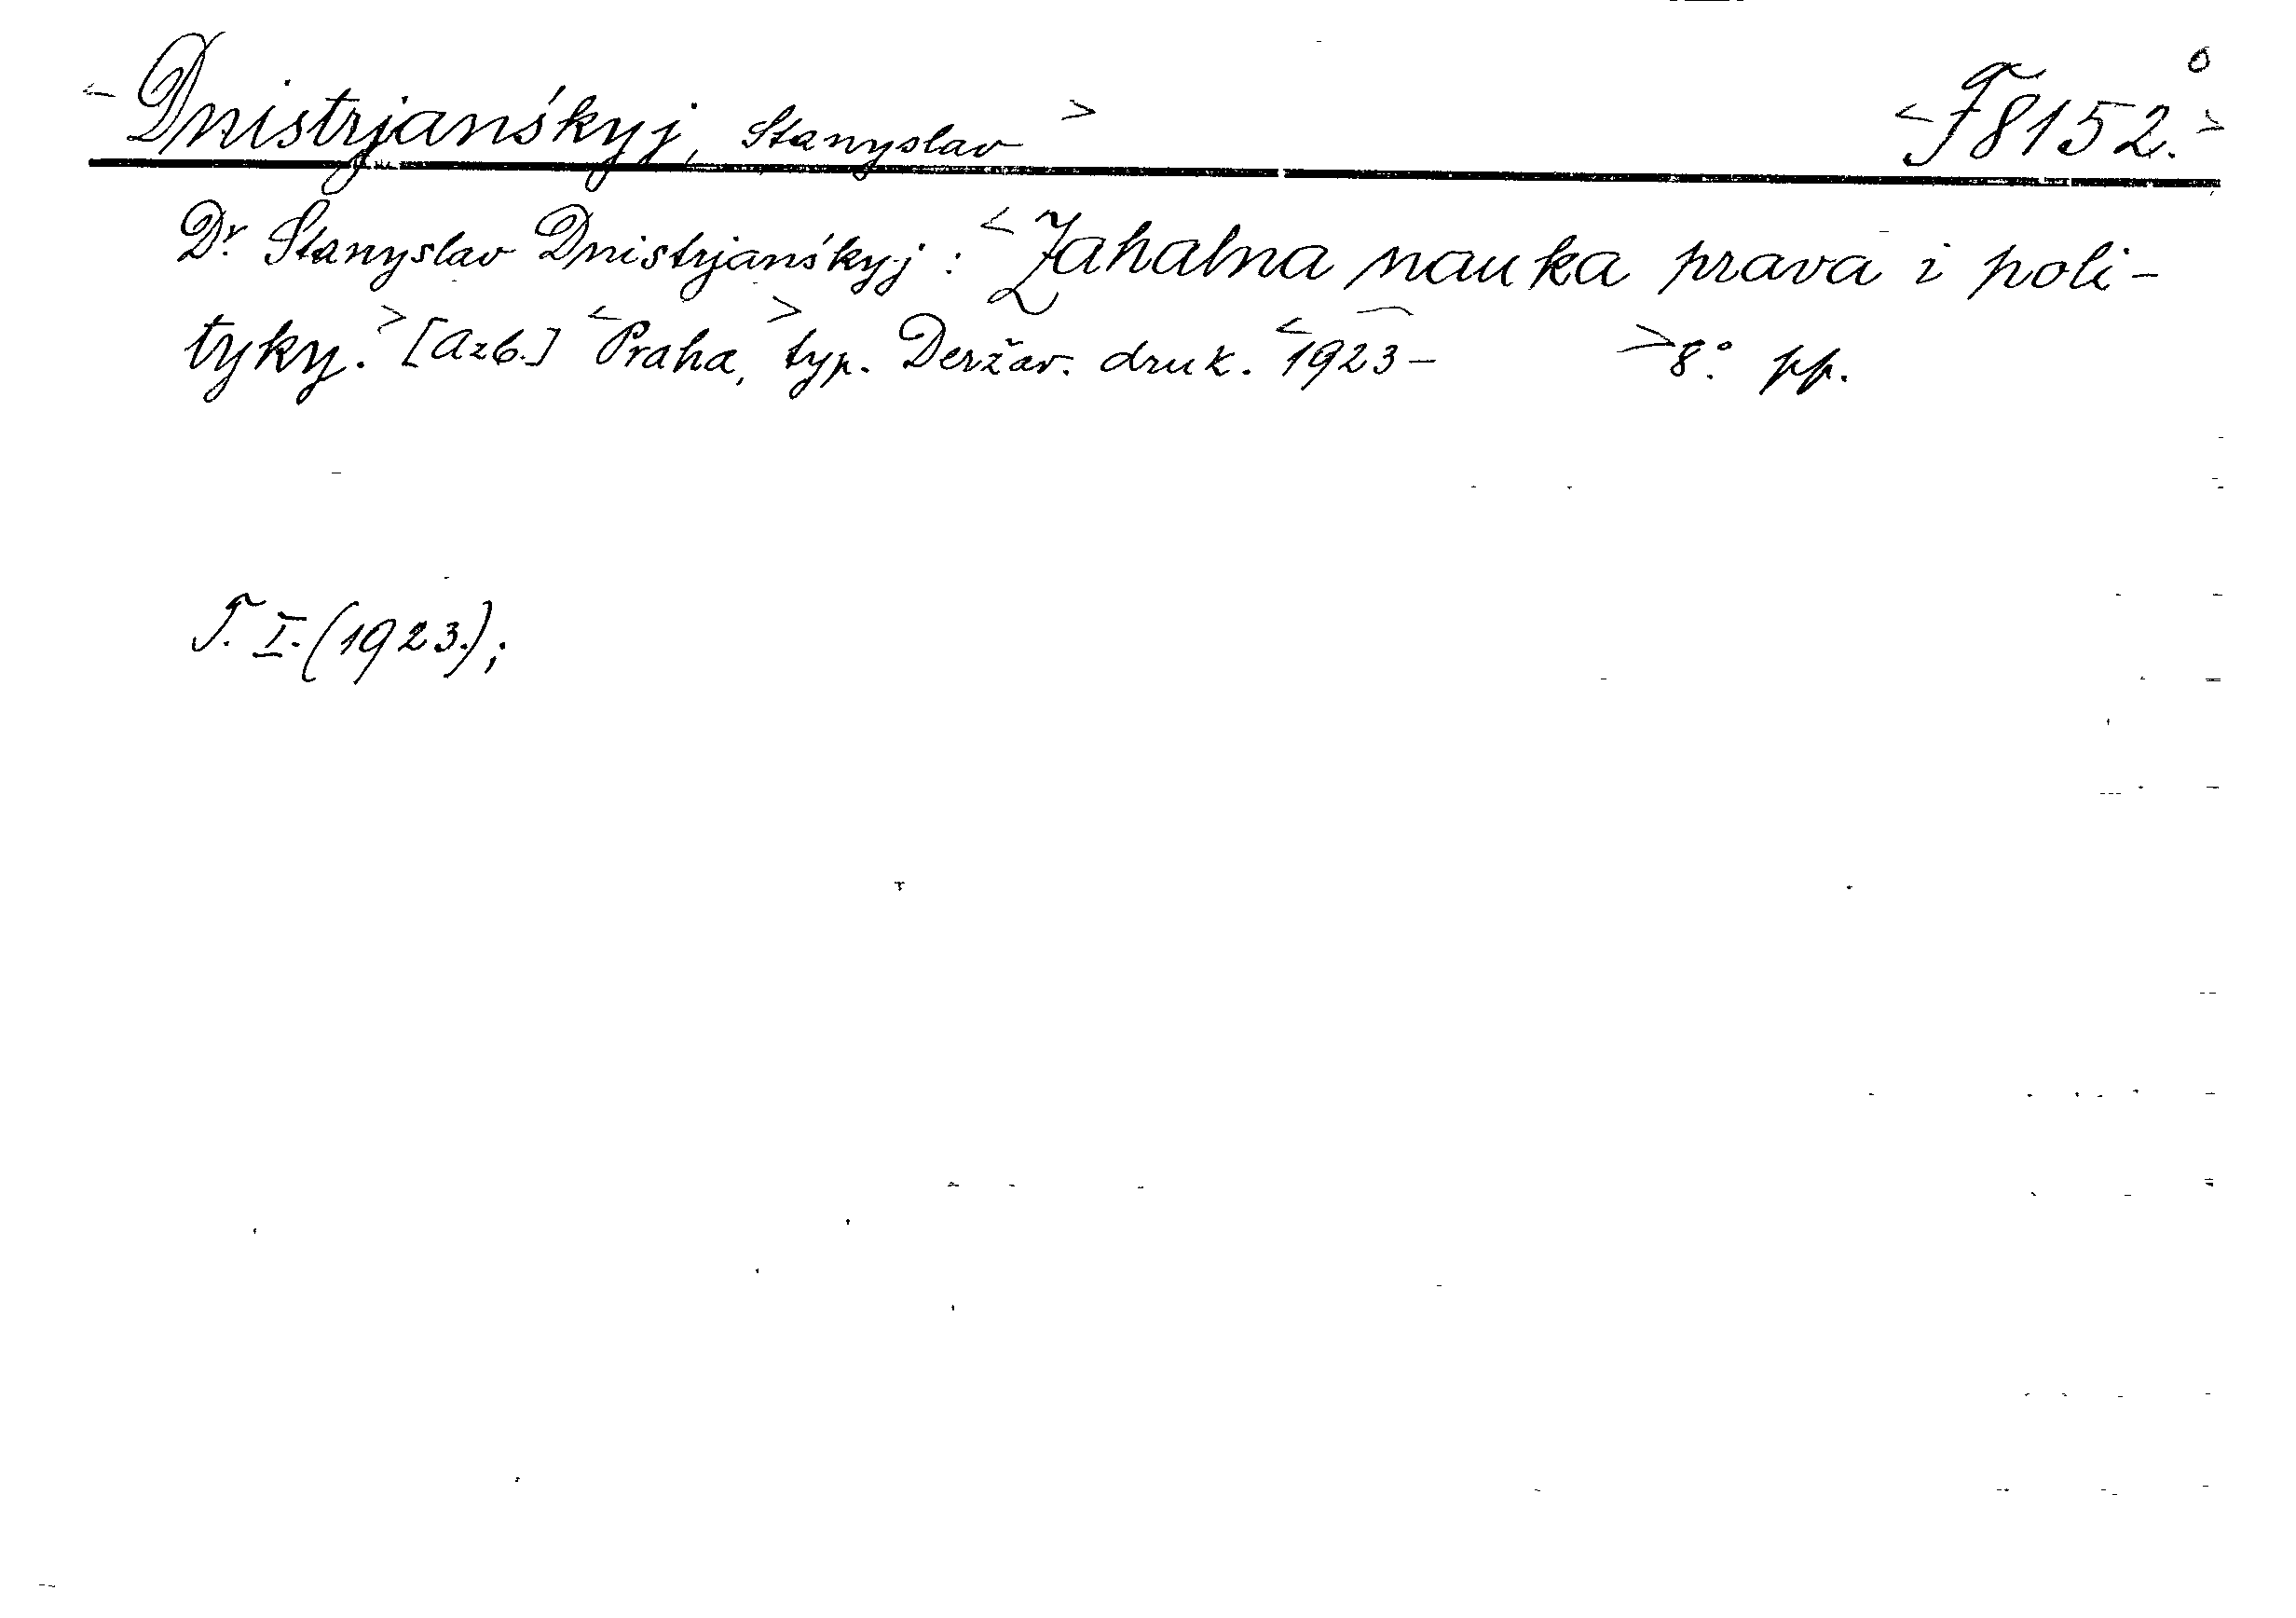 <Dnistrjanśkyj, Stanyslav> <F8152.>
Dr. Stanyslav Dnistrjanśkyj: <Zahalna nauka prava i poli-
tyky.> [Azb.] <Praha,> typ. Deržav. druk. <1923- >8°. pp.
T. I. (1923.);